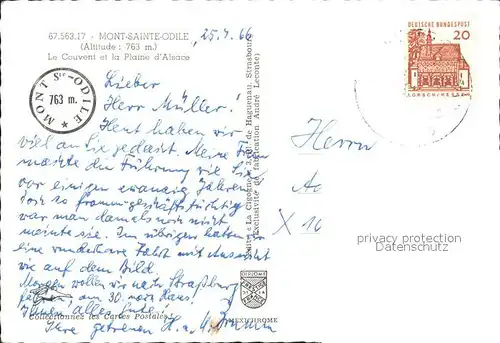 67.563.17 - MONT-SAINTE-ODILE
(Altitude : 763 m.)
Le Couvent et la Plaine d'Alsace
25.7.66
DEUTSCHE BUNDESPOST
20
LORSCH/HESSEN
MONT Ste-ODILE
763 m.
Lieber
Herr Müller!
Heut haben wir
viel an Sie gedacht. Meine Frau
machte die Führung wie Sie
vor einigen zwanzig Jahren
so fromm-geschäftstüchtig
war man damals noch nicht
meinte sie. Im übrigen hatten wir
eine wunderbare Fahrt mit Aussicht
wie auf dem Bild.
Morgen wollen wir nach Straßburg
am 30. nach Haus!
Ihnen alles Gute!
Ihre getreuen H. u.
Herrn
X 16
Editions "La Cigogne" 3, de Haguenau, Strasbourg
Exclusivité de fabrication André Leconte)
privacy protection
Datenschutz
DIPLOME
Collectionnez les Cartes Postales
MEXICHROME